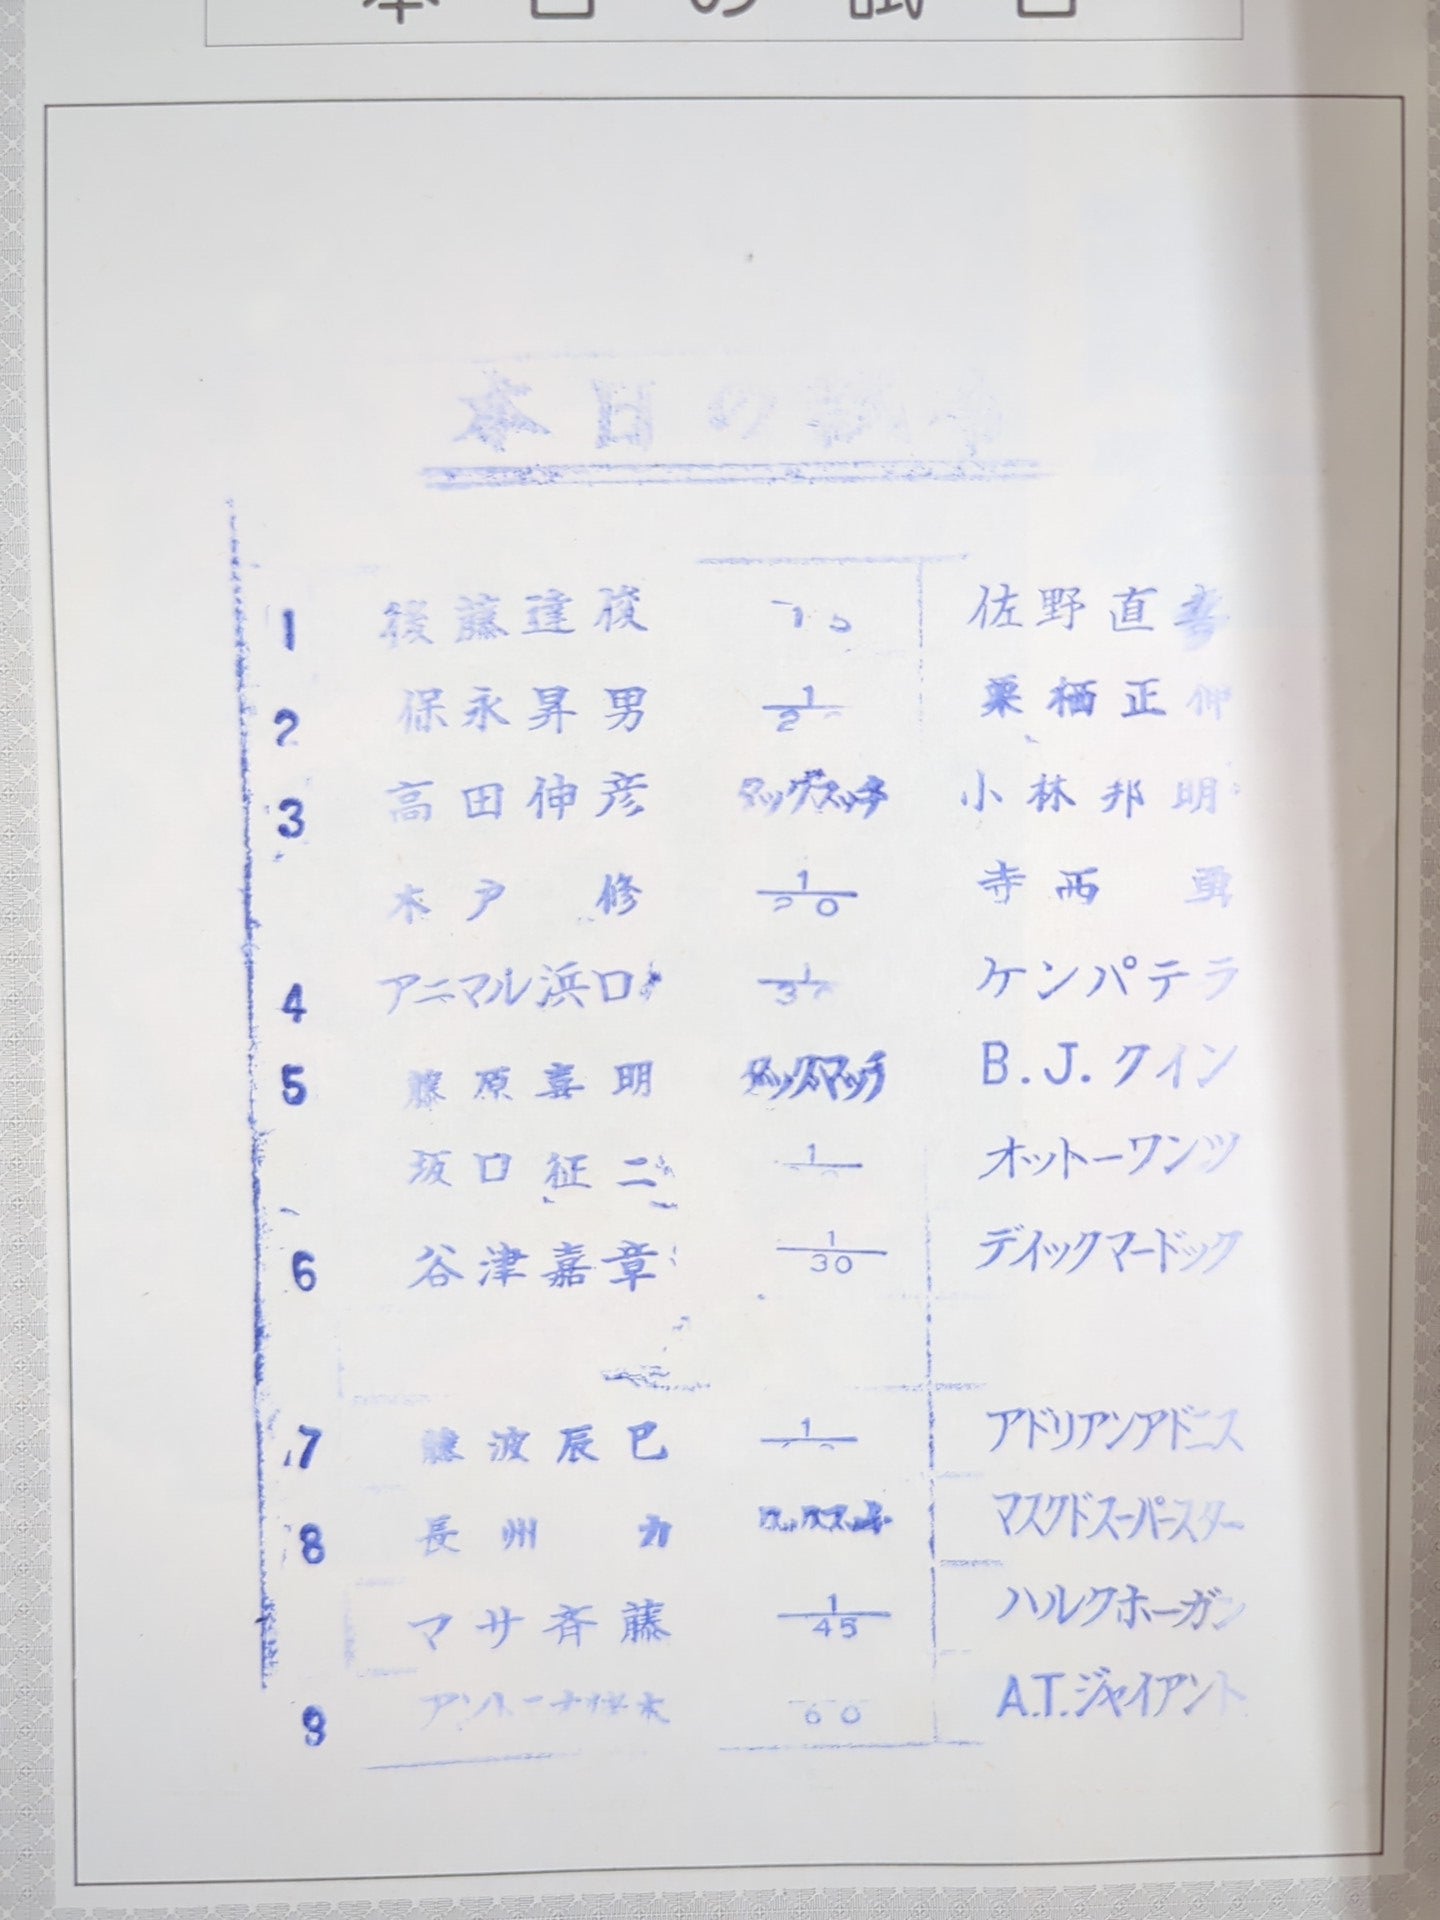 本日の試合
本日の試合
1 後藤達俊 佐野直喜
2 保永昇男 1/2 栗栖正伸
3 高田伸彦 タッグマッチ 小林邦明
木戸修 1/20 寺西勇
4 アニマル浜口 1/3 ケンパテラ
5 藤原喜明 タッグマッチ B.J.クイン
坂口征二 1 オットーワンツ
6 谷津嘉章 1/30 デイックマードック
7 藤波辰巳 1 アドリアンアドニス
8 長州力 タッグマッチ マスクドスーパースター
マサ斉藤 1/45 ハルクホーガン
9 アントニオ猪木 60 A.T.ジャイアント